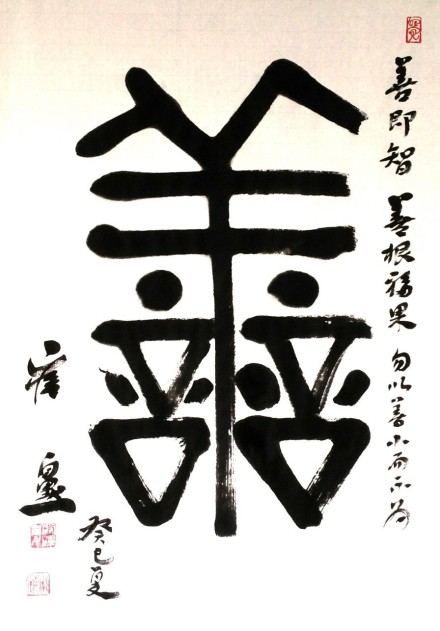 善即智 善根福果 勿以善小而不为
譱
癸巳夏